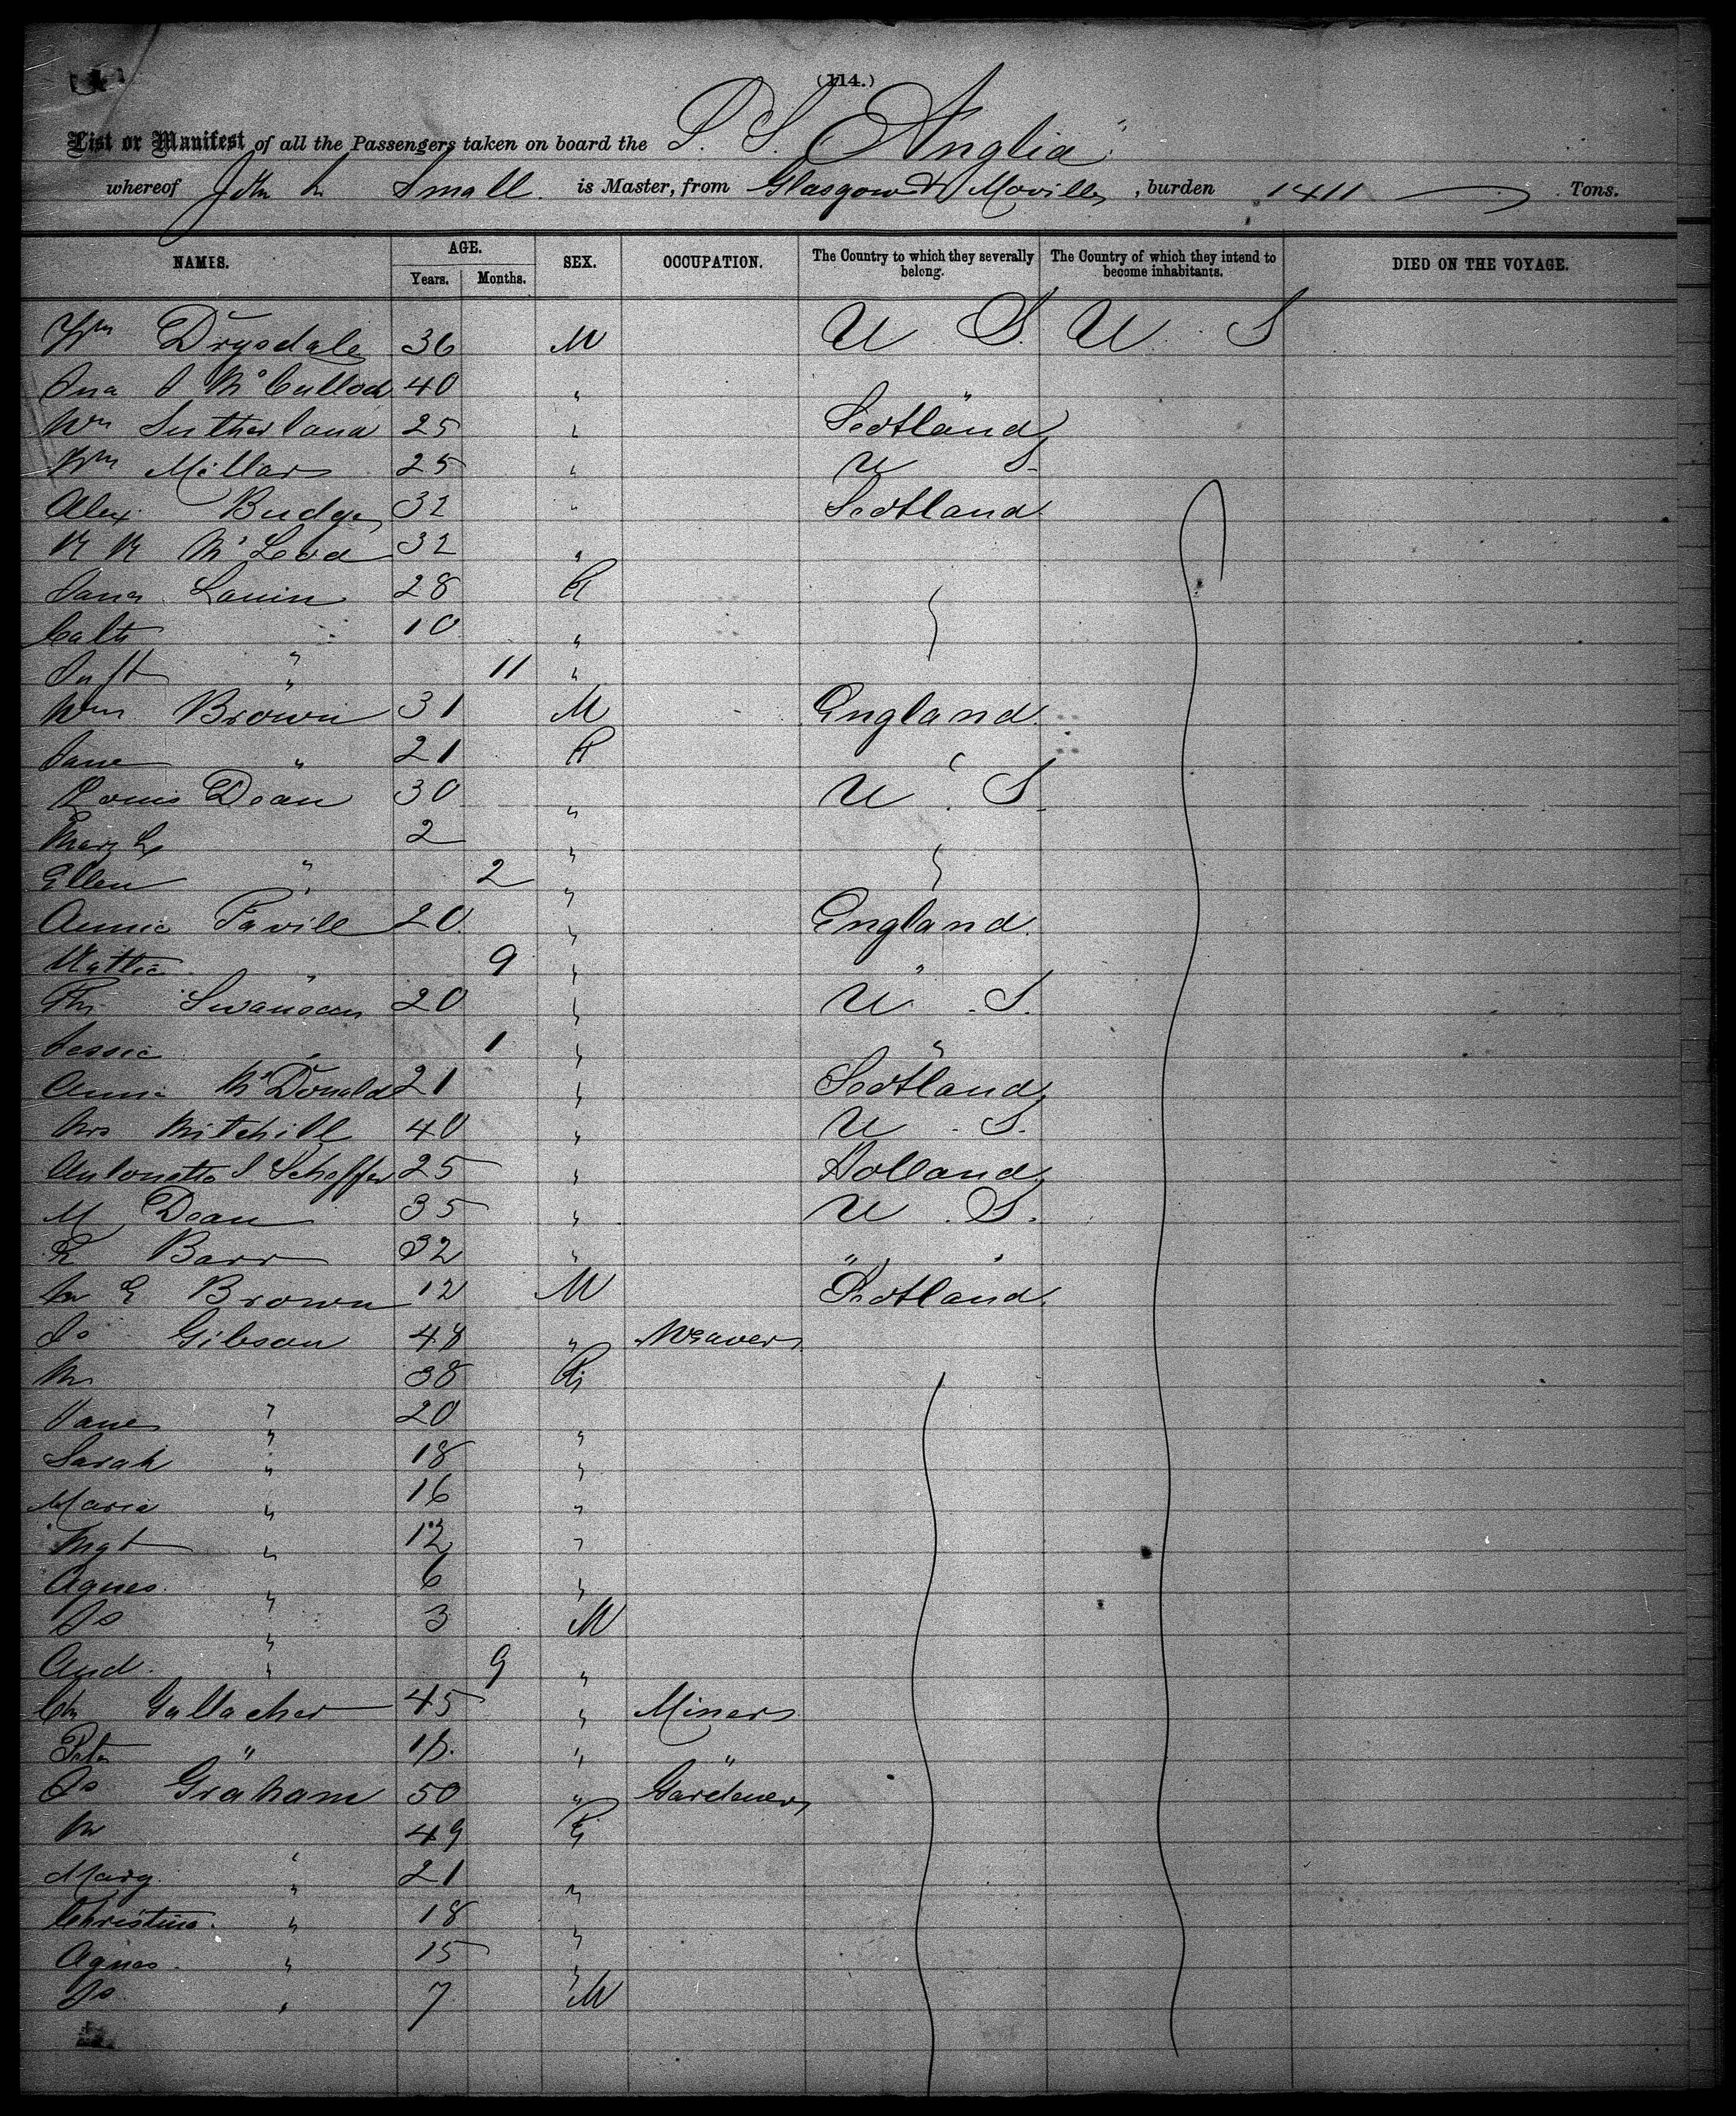 (114.)
List or Manifest of all the Passengers taken on board the S. S. "Anglia"
whereof John Small is Master, from Glasgow & Moville, burden 1411 Tons.
NAMES. AGE. SEX. OCCUPATION. The Country to which they severally belong. The Country of which they intend to become inhabitants. DIED ON THE VOYAGE.
Years. Months.
Wm Drysdale 36 M U S U S
McCulloch 40 " "
Wm Sutherland 25 " Scotland
Wm Millar 25 " U S
Alex Budge 32 " Scotland
McLeod 32 "
28 F
10 "
Inft " 11 "
Wm Brown 31 M England
Jane " 21 F "
Louis Dean 30 " U S
Mary 2 "
Ellen " 2 "
Annie 20 " England
" 9 " "
Swanson 20 " U S.
Jessie " 1 " "
Annie McDonald 21 " Scotland
Mrs Mitchill 40 " U S.
Scheffer 25 " Holland
M Dean 35 " U S.
Barr 32 " " "
E Brown 12 M Scotland
Js Gibson 48 " Weaver
M 38 F
Jane " 20 "
Sarah " 18 "
Maria " 16 "
Mgt " 12 "
Agnes " 6 "
Js " 3 M
And " 9 "
Gallacher 45 " Miner
Peter " " "
Js Graham 50 " Gardener
M 49 F
Marg " 21 "
Christina " 18 "
Agnes " 15 "
Js " 7 M